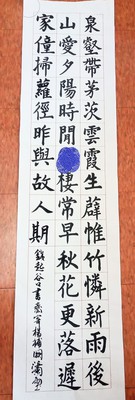 泉壑帶茅茨雲霞生薜惟竹憐新雨後
山愛夕陽時閒棲常早秋花更落遲
家僮掃蘿徑昨與故人期
錢起谷口書齋寄楊補闕